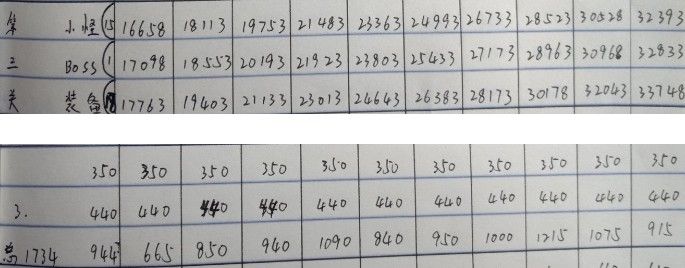 第 小怪(15 16658 18113 19753 21483 23363 24993 26733 28523 30528 32393
三 Boss(1 17098 18553 20193 21923 23803 25433 27173 28963 30968 32833
关 装备( 17763 19403 21133 23013 24643 26383 28173 30178 32043 33748
350 350 350 350 350 350 350 350 350 350 350
3. 440 440 440 440 440 440 440 440 440 440 440
总1734 944 665 850 940 1090 840 950 1000 1215 1075 915